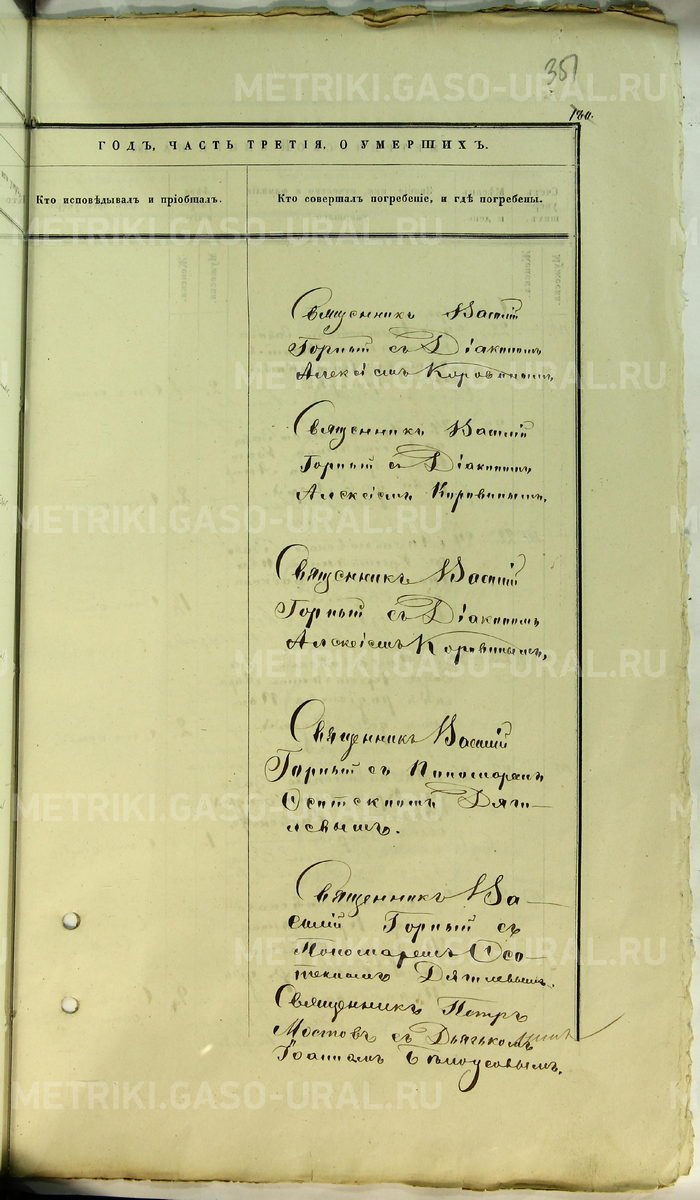 351
180.
ГОДЪ, ЧАСТЬ ТРЕТІЯ, О УМЕРШИХЪ.
Кто исповѣдывалъ и пріобщалъ.
Кто совершалъ погребеніе, и гдѣ погребены.
Священникъ Василій
Горный съ Діакономъ
Алексіемъ Коровинымъ.
Священникъ Василій
Горный съ Діакономъ
Алексіемъ Коровинымъ.
Священникъ Василій
Горный съ Діакономъ
Алексіемъ Коровинымъ,
Священникъ Василій
Горный съ Пономаремъ
Дяги-
левымъ.
Священникъ Ва-
силій Горный съ
Пономаремъ
Священникъ Петръ
Мостовъ съ Дьячкомъ
Іоанномъ Бѣлоусовымъ.
METRIKI.GASO-URAL.RU